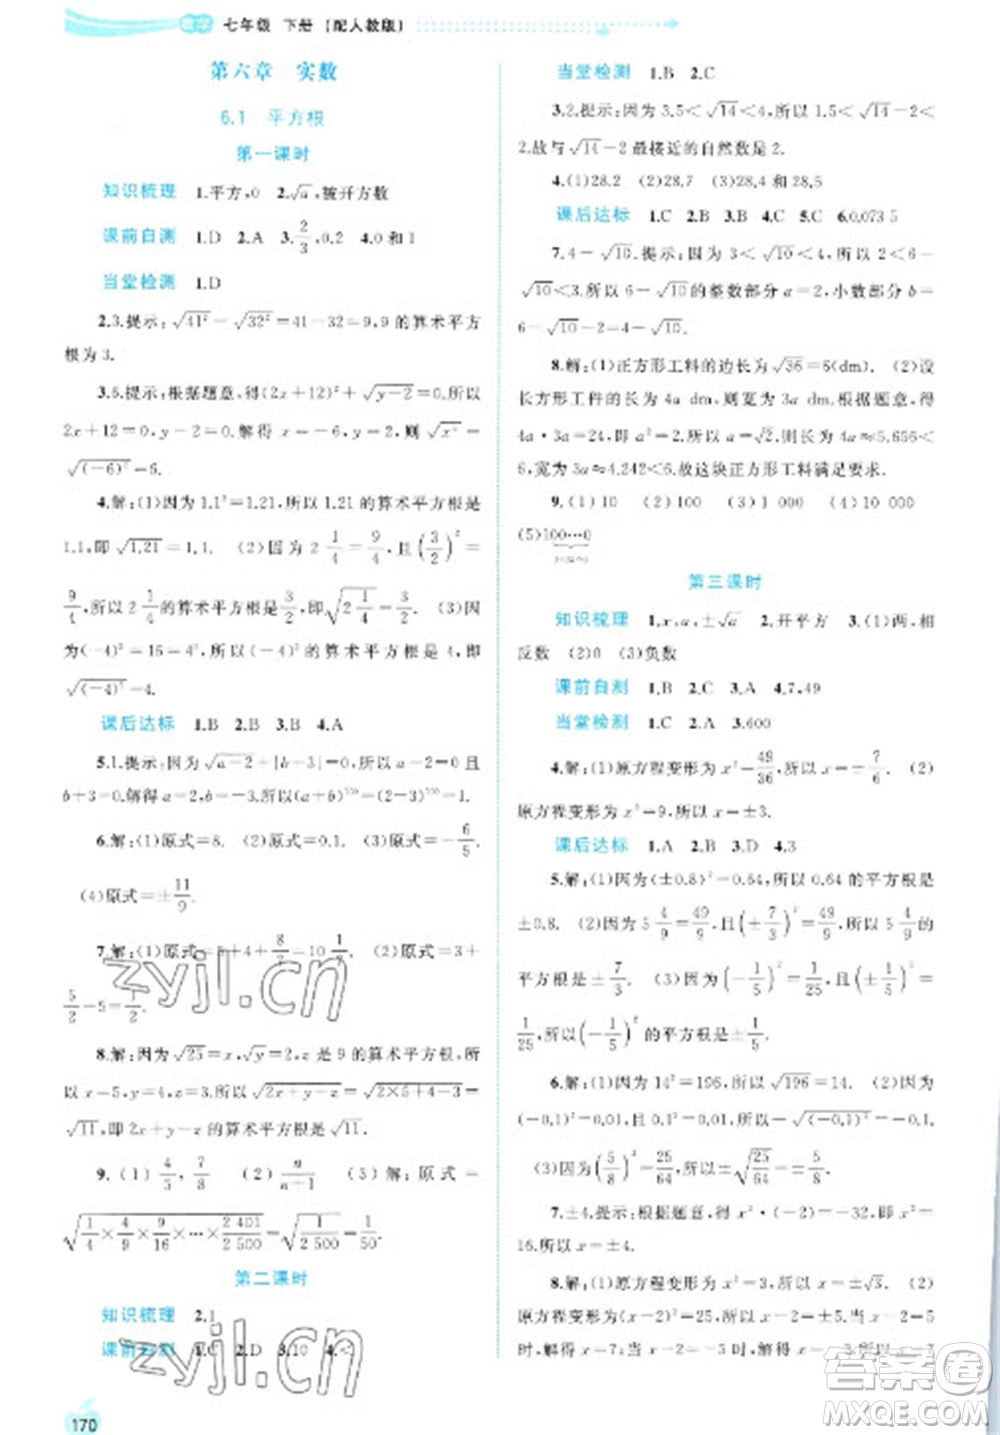 数学 七年级 下册 (配人教版)
第六章 实数
6.1 平方根
第一课时
知识梳理 1.平方,0 2.√a,被开方数
课前自测 1.D 2.A 3.2/3,0.2 4.0和1
当堂检测 1.D
2.3.提示:√41²-√32²=41-32=9,9的算术平方
根为3.
3.6.提示:根据题意,得(2x+12)²+√(y-2)=0.所以
2x+12=0,y-2=0.解得 x=-6,y=2.则 √x²=
√(-6)²=6.
4.解:(1)因为1.1²=1.21,所以1.21的算术平方根是
1.1,即√1.21=1.1. (2)因为2 1/4=9/4,且(3/2)²=
9/4,所以2 1/4的算术平方根是3/2,即√(2 1/4)=3/2. (3)因
为(-4)²=16=4²,所以(-4)²的算术平方根是4,即
√(-4)²=4.
课后达标 1.B 2.B 3.B 4.A
5.1.提示:因为√(a-2)+|b+3|=0,所以a-2=0且
b+3=0.解得a=2,b=-3.所以(a+b)
6.解:(1)原式=8. (2)原式=0.1. (3)原式=-6/5.
(4)原式=±11/9.
7.解:(1)原式=5+4+8/
(2)原式=3+
5/2-5=1/2.
8.解:因为√25=x,√y=2,z是9的算术平方根,所
以x=5,y=4,z=3.所以√(2x+y-z)=√(2×5+4-3)=
√11,即2x+y-z的算术平方根是√11.
9.(1)4/5,7/8 (2)n/(n+1) (3)解:原式=
√(1/4×4/9×9/16×…×2401/2500)=√(1/2500)=1/50.
第二课时
知识梳理 2.1
课前自测 1.C 2.D 3.10 4.<
170
当堂检测 1.B 2.C
3.2.提示:因为3.5<√14<4,所以1.5<√14-2<
2.故与√14-2最接近的自然数是2.
4.(1)28.2 (2)28.7 (3)28.4和28.5
课后达标 1.C 2.B 3.B 4.C 5.C 6.0.0735
7.4-√10.提示:因为3<√10<4,所以2<6-
√10<3.所以6-√10的整数部分a=2,小数部分b=
6-√10-2=4-√10.
8.解:(1)正方形工料的边长为√36=6(dm). (2)设
长方形工件的长为4a dm,则宽为3a dm.根据题意,得
4a·3a=24,即a²=2.所以a=√2.则长为4a≈5.656<
6,宽为3a≈4.242<6.故这块正方形工料满足要求.
9.(1)10 (2)100 (3)1 000 (4)10 000
(5)100…0
第三课时
知识梳理 1.x,a,±√a 2.开平方 3.(1)两,相
反数 (2)0 (3)负数
课前自测 1.B 2.C 3.A 4.7,49
当堂检测 1.C 2.A 3.600
4.解:(1)原方程变形为x²=49/36,所以x=±7/6. (2)
原方程变形为x²=9,所以x=±3.
课后达标 1.A 2.B 3.D 4.3
5.解:(1)因为(±0.8)²=0.64,所以0.64的平方根是
±0.8. (2)因为5 4/9=49/9,且(±7/3)²=49/9,所以5 4/9的
平方根是±7/3. (3)因为(-1/5)²=1/25,且(±1/5)²=
1/25,所以(-1/5)²的平方根是±1/5.
6.解:(1)因为14²=196,所以√196=14. (2)因为
(-0.1)²=0.01,且0.1²=0.01,所以-√(-0.1)²=-0.1.
(3)因为(5/8)²=25/64,所以±√(25/64)=±5/8.
7.±4.提示:根据题意,得x²·(-2)=-32,即x²=
16.所以x=±4.
8.解:(1)原方程变形为x²=3,所以x=±√3. (2)
原方程变形为(x-2)²=25,所以x-2=±5.当x-2=5
时,解得x=7;当x-2=-5时,解得x=-3.
zyjl.cn
zyjl.cn
答案圈
MXQE.COM